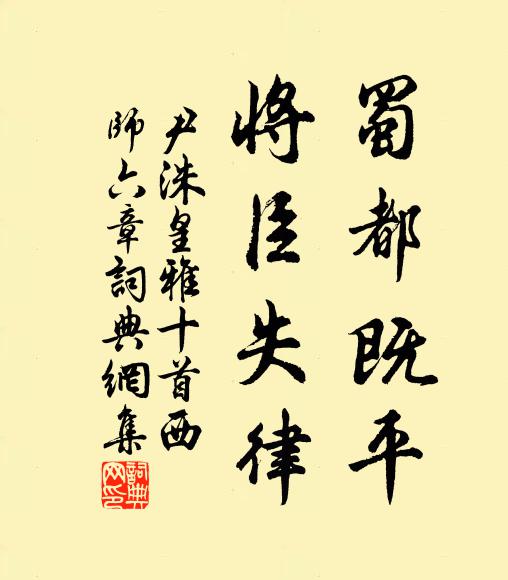 蜀都既平
將臣失律
尹洙皇雅十首西
師六章詞典網集
詞典
网印